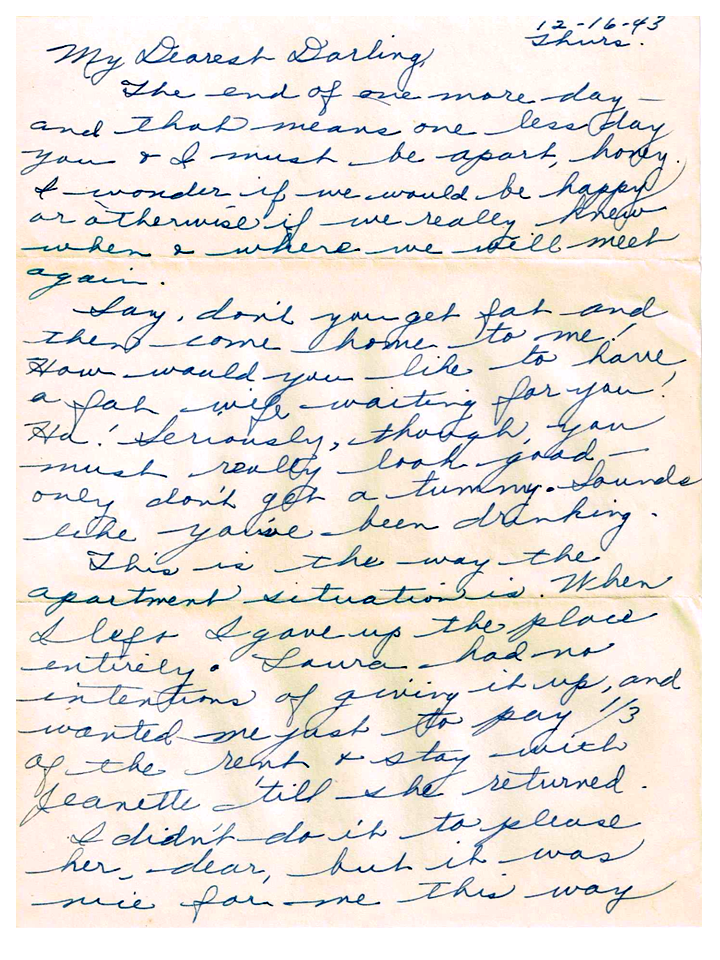 12-16-43
Thurs.
My Dearest Darling,
The end of one more day —
and that means one less day
you & I must be apart, honey.
I wonder if we would be happy
or otherwise if we really knew
when & where we will meet
again.
Say, don't you get fat and
then come home to me!
How would you like to have
a fat wife waiting for you!
Ha! Seriously, though, you
must really look good —
only don't get a tummy. Sounds
like you've been drinking.
This is the way the
apartment situation is. When
I left I gave up the place
entirely. Laura had no
intentions of giving it up, and
wanted me just to pay 1/3
of the rent & stay with
Jeanette 'till she returned.
I didn't do it to please
her, dear, but it was
nice for me this way